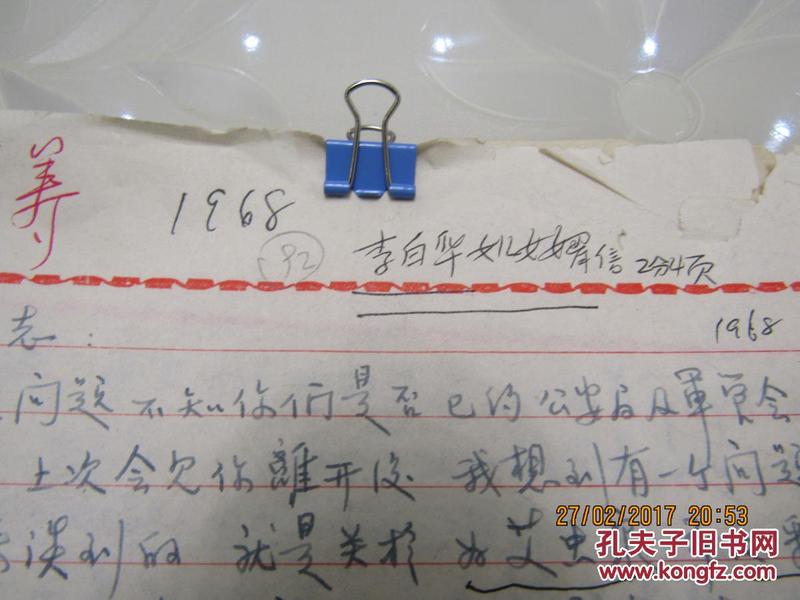 1968
92
李白华女儿女婿信 2分4页
1968
志：
问题 不知你们是否已约公安局及军管会
上次会见你離开後 我想到有一个问题
谈到的 就是关於
27/02/2017 20:53
孔夫子旧书网
www.kongfz.com